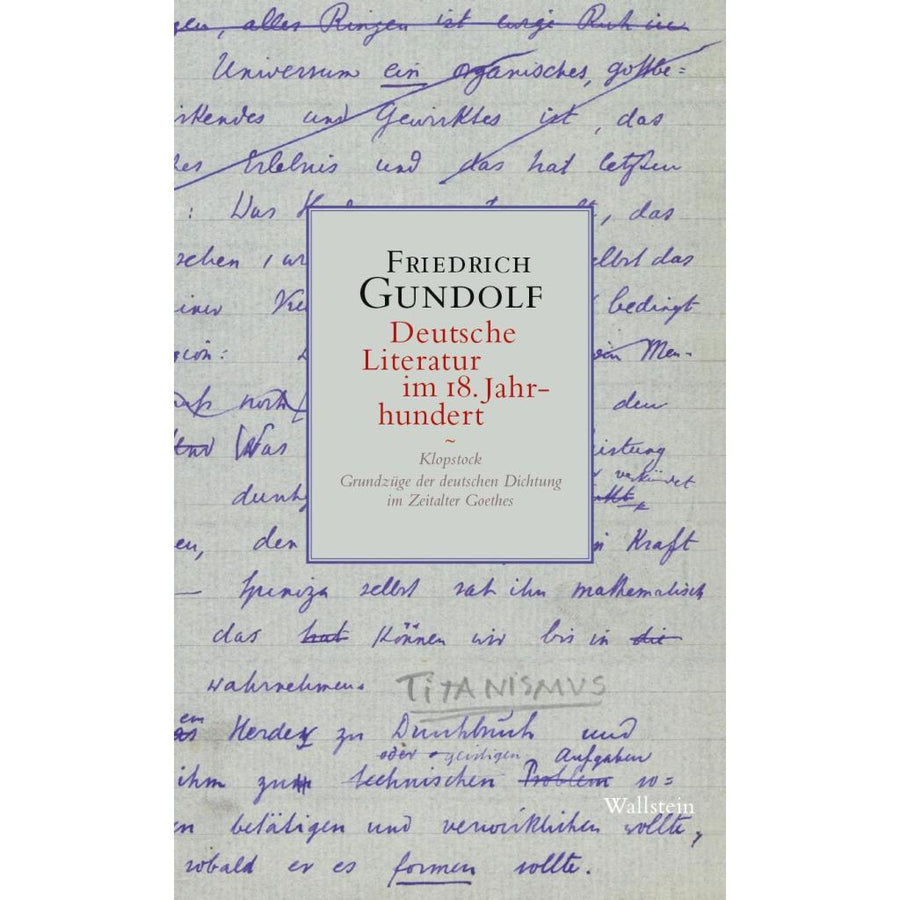 gen, alles Ringen ist ewige Ruh im
Universum ein organisches, gottbe=
irkendes und Gewirktes ist, das
Erlebnis und das hat letzten
: Das
, das
FRIEDRICH
GUNDOLF
Deutsche
Literatur
im 18. Jahr-
hundert
~
Klopstock
Grundzüge der deutschen Dichtung
im Zeitalter Goethes
selbst das
einer
bedingt
gion:
Men-
noch
den
Was
eistung
verkündet
dunk
en, den
in Kraft
— Spinoza selbst sah ihn mathematisch
das hat können wir bis in die
wahrnehmen.
TITANISMUS
em
Herder zu Durchbruch und
oder geistigen Aufgaben
ihm zum technischen Problem so=
n betätigen und verwirklichen wollte,
sobald er es formen sollte.
Wallstein